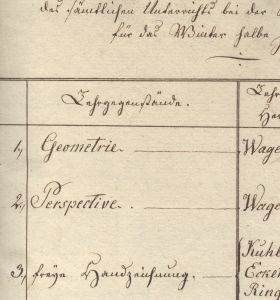 des sämtlichen Unterrichts bei der
für das Winter halbe
Lehrgegenstände.
Lehr
1, Geometrie Wage
2, Perspective. Wage
Kuhl
3, freye Handzeichnung. Ecker
Ring